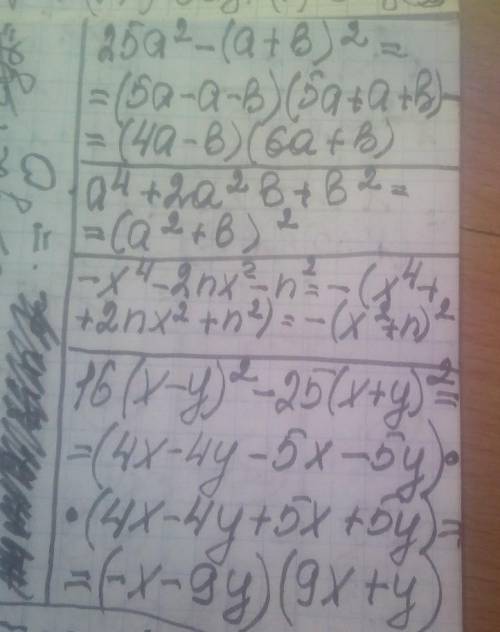 25a² - (a + b)² =
= (5a - a - b)(5a + a + b) -
= (4a - b)(6a + b)
a⁴ + 2a² b + b² =
= (a² + b)²
-x⁴ - 2nx² - n² = - (x⁴ +
+ 2nx² + n²) = - (x² + n)²
16(x - y)² - 25(x + y)² =
= (4x - 4y - 5x - 5y) •
• (4x - 4y + 5x + 5y) =
= (-x - 9y)(9x + y)